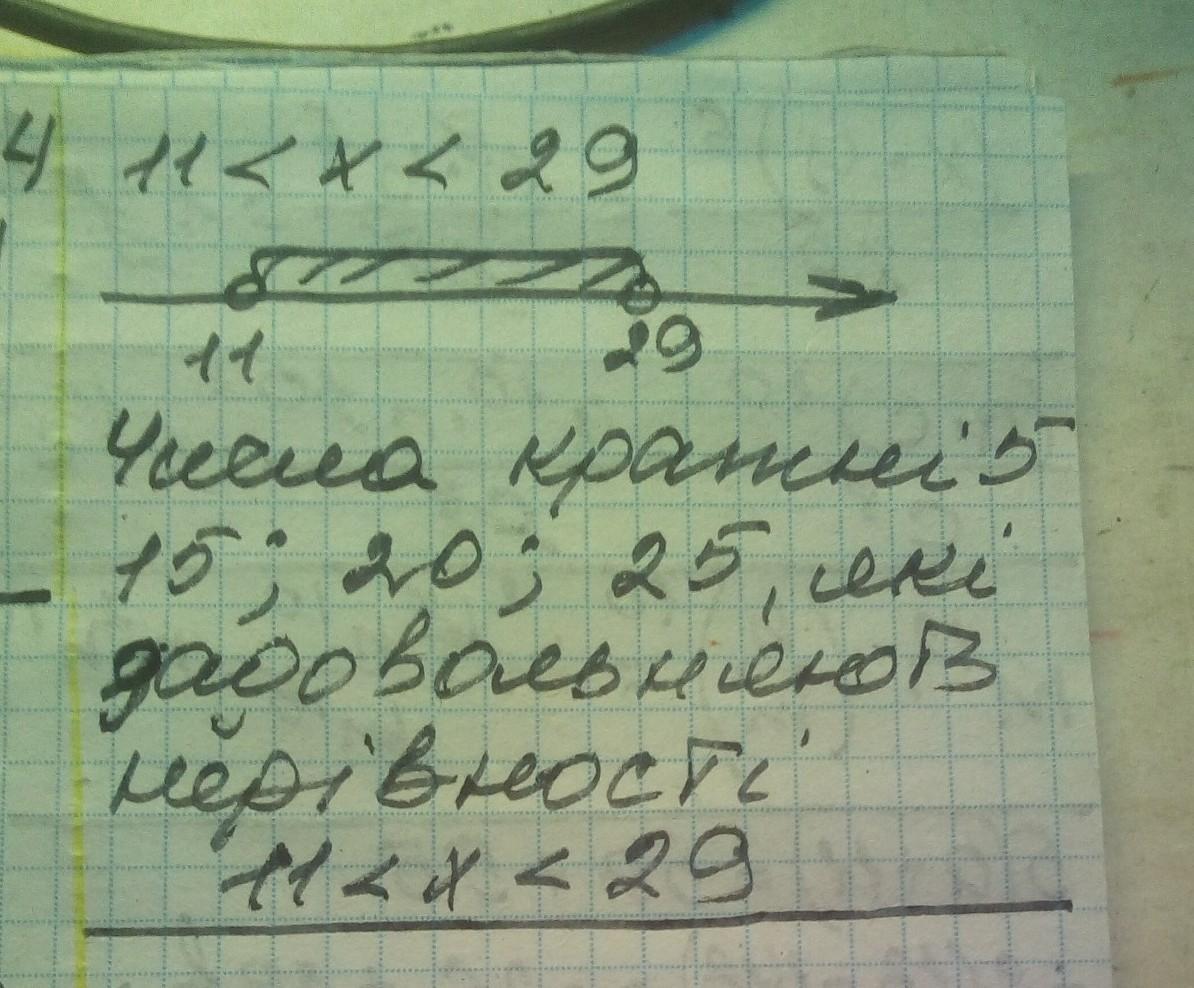 4 11 < x < 29
11 29
Числа кратні 5
15; 20; 25, які
задовольняють
нерівності
11 < x < 29